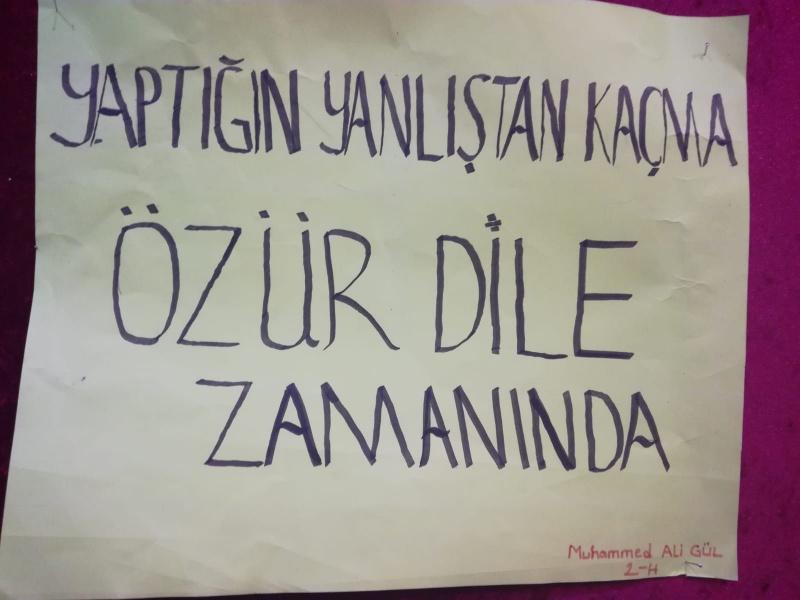 YAPTIĞIN YANLIŞTAN KAÇMA
ÖZÜR DİLE
ZAMANINDA
Muhammed ALi GÜL
2-H